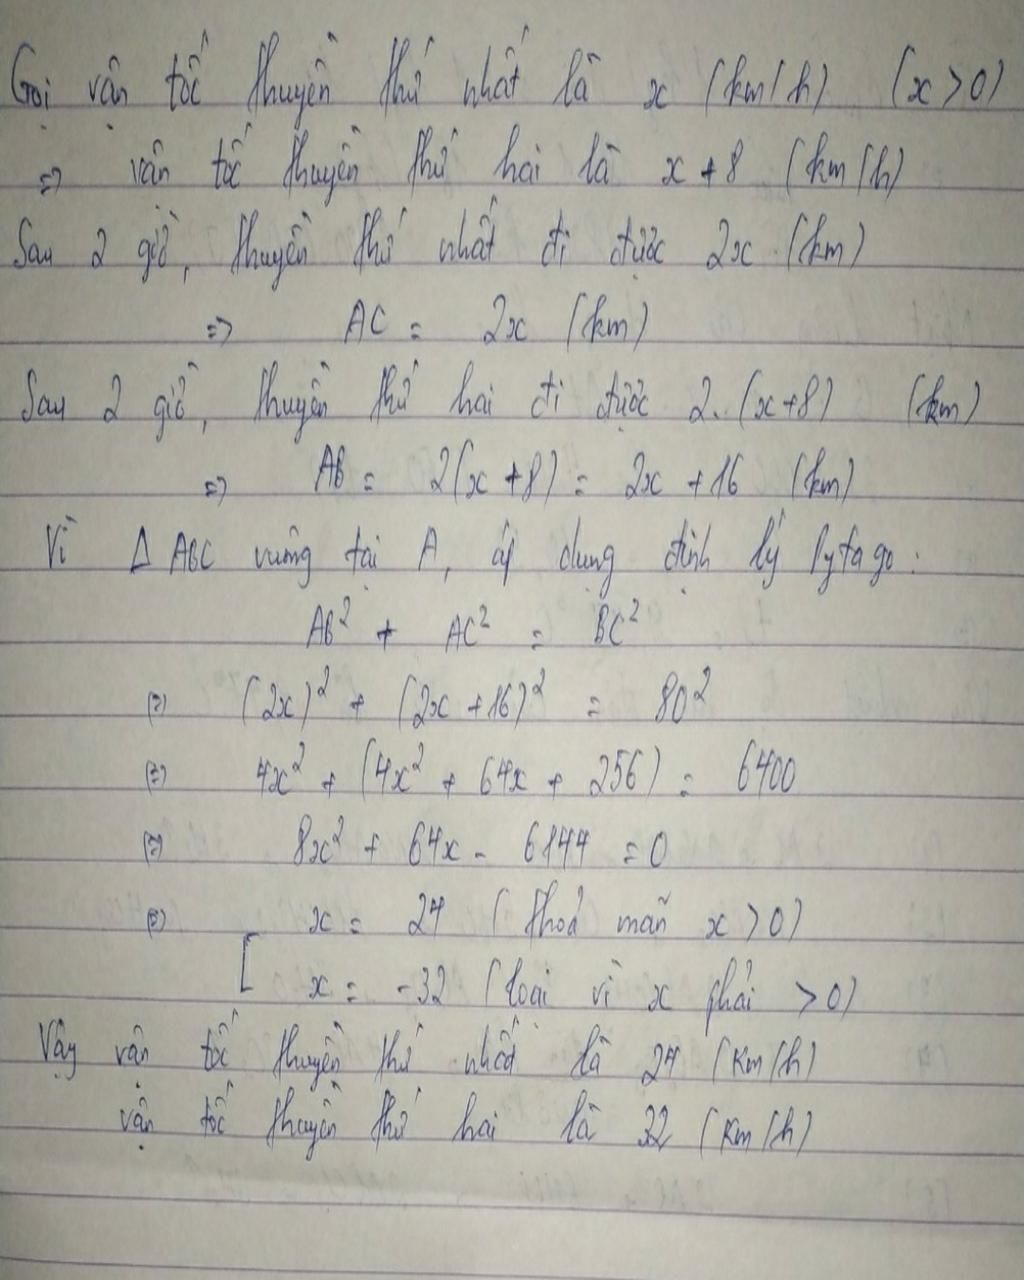 Gọi vận tốc thuyền thứ nhất là x (km/h) (x > 0)
=> vân tốc thuyền thứ hai là x + 8 (km/h)
Sau 2 giờ, thuyền thứ nhất đi được 2x (km)
=> AC = 2x (km)
Sau 2 giờ, thuyền thứ hai đi được 2.(x+8) (km)
=> AB = 2(x+8) = 2x + 16 (km)
Vì Δ ABC vuông tại A, áp dụng định lý Pytago:
AB² + AC² = BC²
(=) (2x)² + (2x + 16)² = 80²
(=) 4x² + (4x² + 64x + 256) = 6400
(=) 8x² + 64x - 6144 = 0
(=) x = 24 (thoả mãn x > 0)
[ x = -32 (loại vì x phải > 0)
Vậy vận tốc thuyền thứ nhất là 24 (km/h)
vận tốc thuyền thứ hai là 32 (km/h)